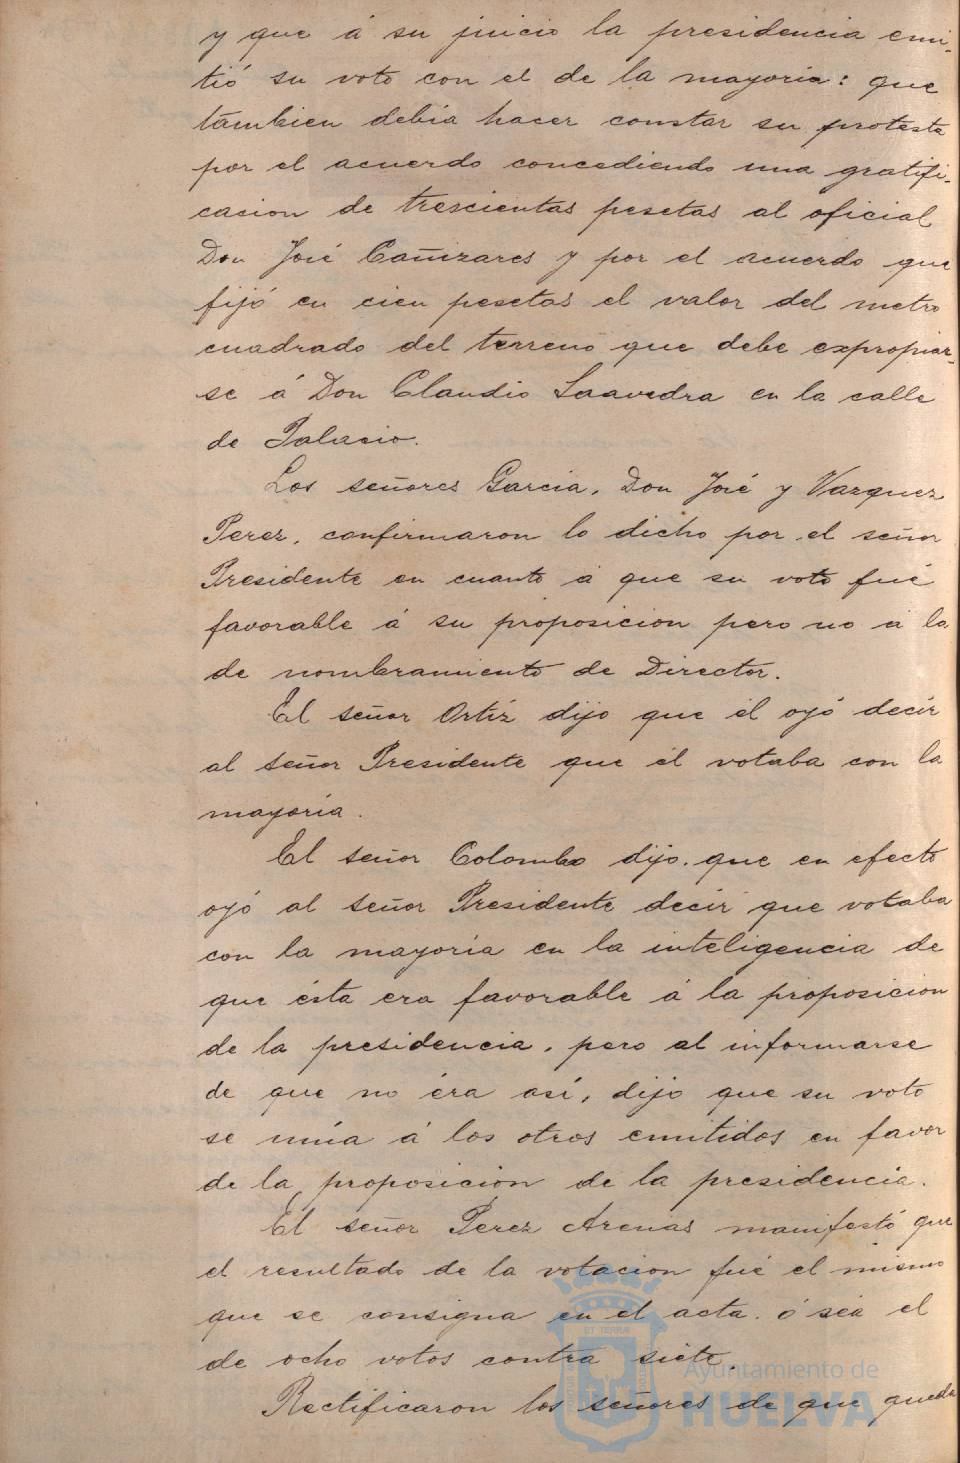 y que á su juicio la presidencia emi-
tió su voto con el de la mayoria: que
tambien debia hacer constar su protesta
por el acuerdo concediendo una gratifi-
cacion de trescientas pesetas al oficial
Don José Cañizares y por el acuerdo que
fijó en cien pesetas el valor del metro
cuadrado del terreno que debe expropiar-
se á Don Claudio Saavedra en la calle
de Palacio.
Los señores Garcia, Don José y Vazquez
Perez, confirmaron lo dicho por el señor
Presidente en cuanto á que su voto fué
favorable á su proposicion pero no á la
de nombramiento de Director.
El señor Ortiz dijo que él oyó decir
al señor Presidente que él votaba con la
mayoria.
El señor Colombo dijo que en efecto
oyó al señor Presidente decir que votaba
con la mayoria en la inteligencia de
que ésta era favorable á la proposicion
de la presidencia, pero al informarse
de que no éra así, dijo que su voto
se unia á los otros emitidos en favor
de la proposicion de la presidencia.
El señor Perez Arenas manifestó que
el resultado de la votacion fué el mismo
que se consigna en el acta. ó sea el
de ocho votos contra siete.
Rectificaron los señores de que queda
Ayuntamiento de
HUELVA